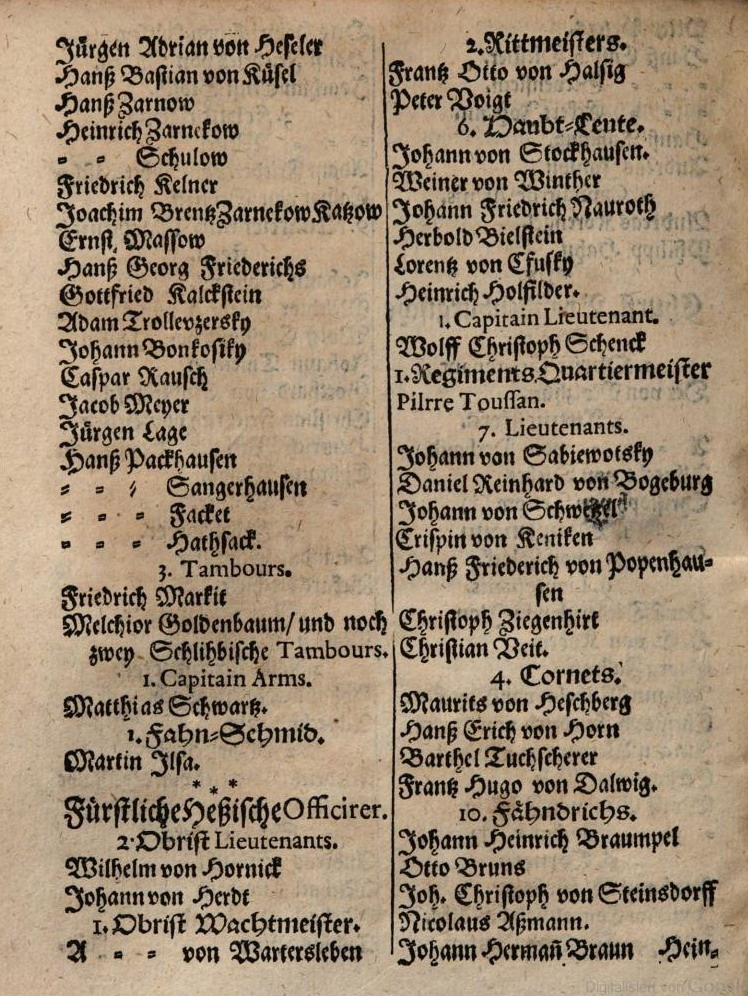 Jürgen Adrian von Heseler
Hanß Bastian von Küsel
Hanß Zarnow
Heinrich Zarnekow
- - Schulow
Friedrich Kelner
Joachim Brentz Zarnekow Katzow
Ernst Massow
Hanß Georg Friederichs
Gottfried Kalckstein
Adam Trollevzersky
Johann Bonkosiky
Caspar Rausch
Jacob Meyer
Jürgen Lage
Hanß Packhausen
- - - Sangerhausen
- - - Facket
- - - Hathsack.
3. Tambours.
Friedrich Markit
Melchior Goldenbaum/ und noch
zwey Schlihbische Tambours.
1. Capitain Arms.
Matthias Schwartz.
1. Fahn-Schmid.
Martin Ilsa.
* * *
Fürstliche Heßische Officirer.
2. Obrist Lieutenants.
Wilhelm von Hornick
Johann von Herdt
1. Obrist Wachtmeister.
A - - von Wartersleben
2. Rittmeisters.
Frantz Otto von Halsig
Peter Voigt
6. Haubt-Leute.
Johann von Stockhausen.
Weiner von Winther
Johann Friedrich Nauroth
Herbold Bielstein
Lorentz von Csusky
Heinrich Holsilder.
1. Capitain Lieutenant.
Wolff Christoph Schenck
1. Regiments Quartiermeister
Pilrre Toussan.
7. Lieutenants.
Johann von Sabiewotsky
Daniel Reinhard von Bogeburg
Johann von
Crispin von Keniken
Hanß Friederich von Popenhau-
sen
Christoph Ziegenhirt
Christian Veit.
4. Cornets.
Maurits von Heschberg
Hanß Erich von Horn
Barthel Tuchscherer
Frantz Hugo von Dalwig.
10. Fähndrichs.
Johann Heinrich Braumpel
Otto Bruns
Joh. Christoph von Steinsdorff
Nicolaus Aßmann.
Johann Hermañ Braun Hein-
Digitalisiert von Google